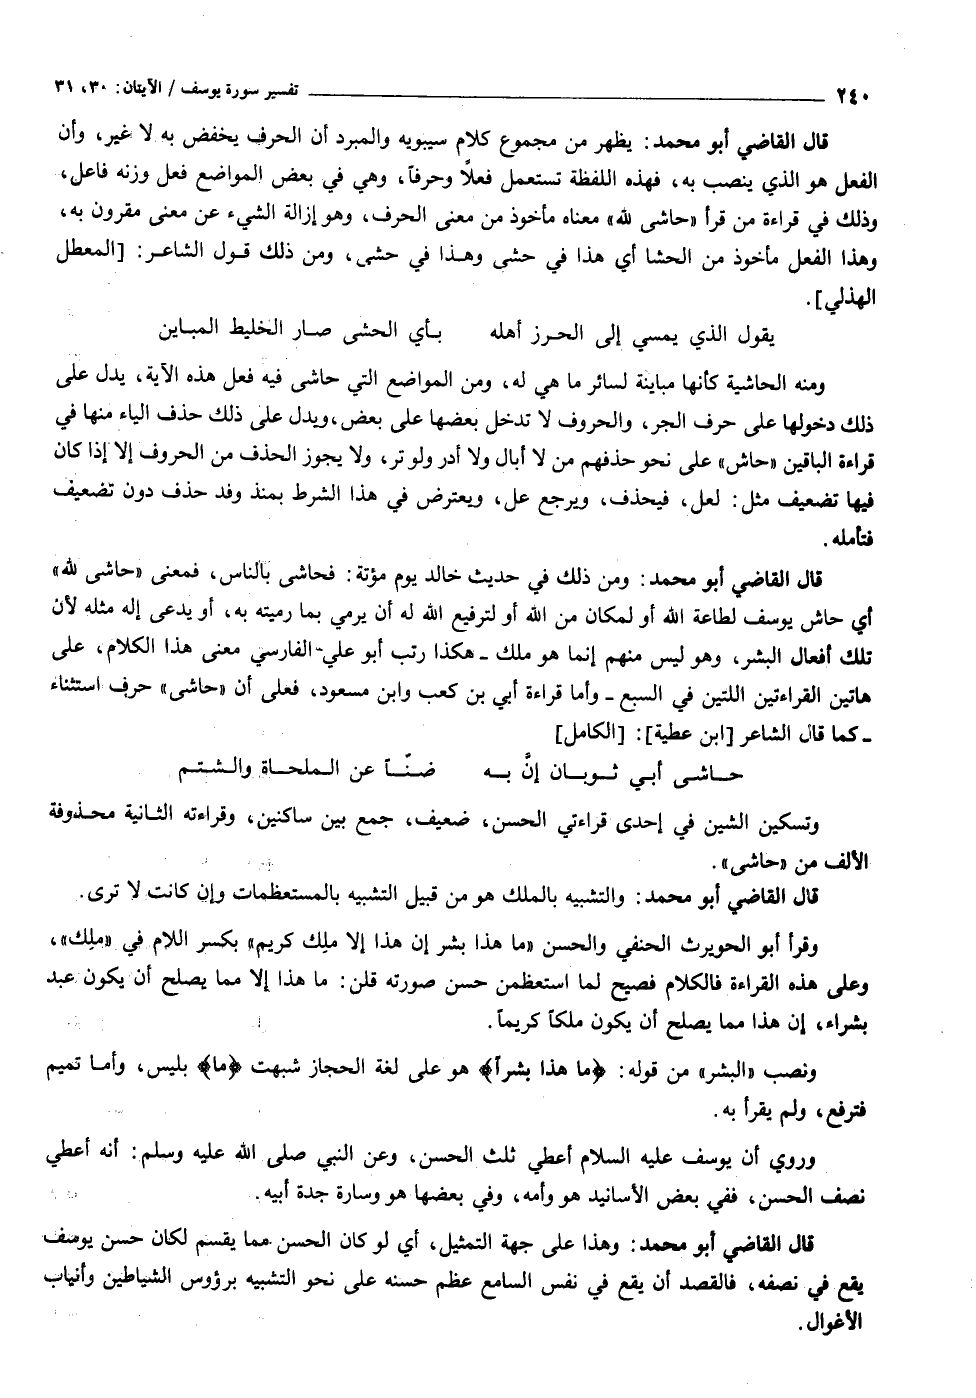 ٢٤٠ تفسير سورة يوسف / الآيتان: ٣٠، ٣١
قال القاضي أبو محمد: يظهر من مجموع كلام سيبويه والمبرد أن الحرف يخفض به لا غير، وأن
الفعل هو الذي ينصب به، فهذه اللفظة تستعمل فعلاً وحرفاً، وهي في بعض المواضع فعل وزنه فاعل،
وذلك في قراءة من قرأ «حاشى لله» معناه مأخوذ من معنى الحرف، وهو إزالة الشيء عن معنى مقرون به،
وهذا الفعل مأخوذ من الحشا أي هذا في حشى وهذا في حشى، ومن ذلك قول الشاعر: [المعطل
الهذلي].
يقول الذي يمسي إلى الحرز أهله بأي الحشى صار الخليط المباين
ومنه الحاشية كأنها مباينة لسائر ما هي له، ومن المواضع التي حاشى فيه فعل هذه الآية، يدل على
ذلك دخولها على حرف الجر، والحروف لا تدخل بعضها على بعض، ويدل على ذلك حذف الياء منها في
قراءة الباقين «حاش» على نحو حذفهم من لا أبال ولا أدر ولو تر، ولا يجوز الحذف من الحروف إلا إذا كان
فيها تضعيف مثل: لعل، فيحذف، ويرجع عل، ويعترض في هذا الشرط بمنذ وفد حذف دون تضعيف
فتأمله.
قال القاضي أبو محمد: ومن ذلك في حديث خالد يوم مؤتة: فحاشى بالناس، فمعنى «حاشى لله»
أي حاش يوسف لطاعة الله أو لمكان من الله أو لترفيع الله له أن يرمي بما رميته به، أو يدعى إله مثله لأن
تلك أفعال البشر، وهو ليس منهم إنما هو ملك ـ هكذا رتب أبو علي الفارسي معنى هذا الكلام، على
هاتين القراءتين اللتين في السبع ـ وأما قراءة أبي بن كعب وابن مسعود، فعلى أن «حاشى» حرف استثناء
ـ كما قال الشاعر [ابن عطية]: [الكامل]
حاشى أبي ثوبان إنَّ به ضنّاً عن الملحاة والشتم
وتسكين الشين في إحدى قراءتي الحسن، ضعيف، جمع بين ساكنين، وقراءته الثانية محذوفة
الألف من «حاشى».
قال القاضي أبو محمد: والتشبيه بالملك هو من قبيل التشبيه بالمستعظمات وإن كانت لا ترى.
وقرأ أبو الحويرث الحنفي والحسن «ما هذا بشر إن هذا إلا ملِك كريم» بكسر اللام في «ملِك»،
وعلى هذه القراءة فالكلام فصيح لما استعظمن حسن صورته قلن: ما هذا إلا مما يصلح أن يكون عبد
بشراء، إن هذا مما يصلح أن يكون ملكاً كريماً.
ونصب «البشر» من قوله: ﴿ما هذا بشراً﴾ هو على لغة الحجاز شبهت ﴿ما﴾ بليس، وأما تميم
فترفع، ولم يقرأ به.
وروي أن يوسف عليه السلام أعطي ثلث الحسن، وعن النبي صلى الله عليه وسلم: أنه أعطي
نصف الحسن، ففي بعض الأسانيد هو وأمه، وفي بعضها هو وسارة جدة أبيه.
قال القاضي أبو محمد: وهذا على جهة التمثيل، أي لو كان الحسن مما يقسم لكان حسن يوسف
يقع في نصفه، فالقصد أن يقع في نفس السامع عظم حسنه على نحو التشبيه برؤوس الشياطين وأنياب
الأغوال.